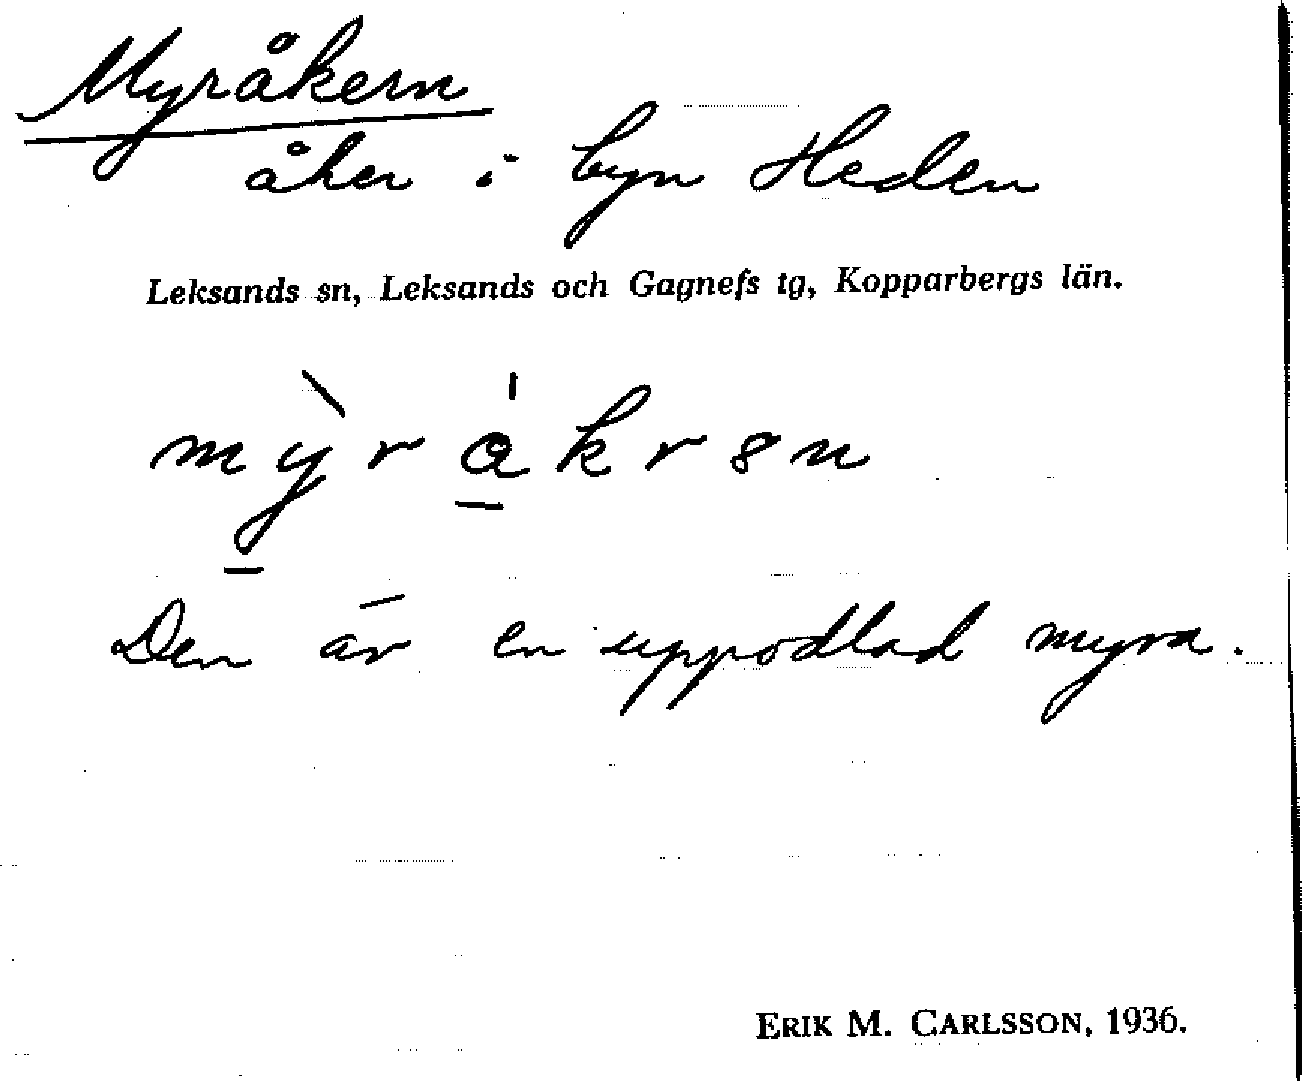 Myråkern
åker i byn Heden
Leksands sn, Leksands och Gagnefs tg, Kopparbergs län.
mỳ̠ra̠̍krən
Den är en uppodlad myra.
ERIK M. CARLSSON, 1936.